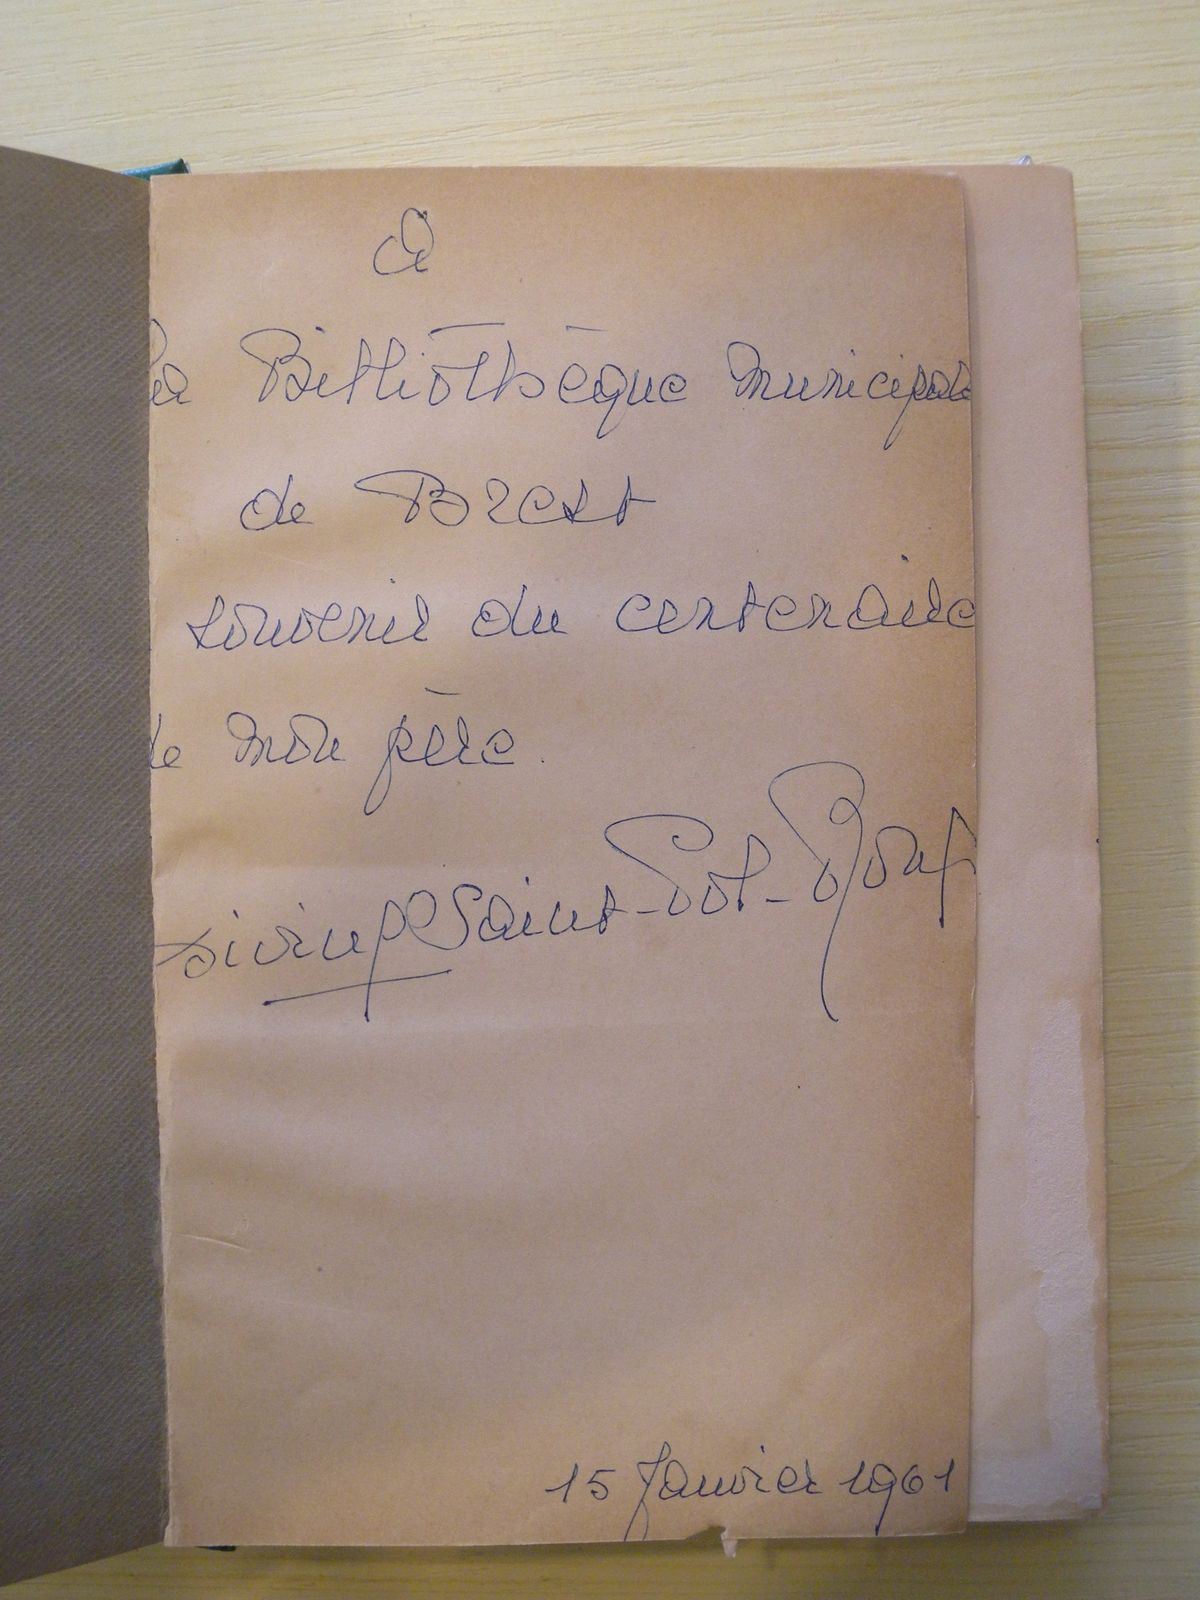 à
la Bibliothèque Municipale
de Brest
souvenir du centenaire
de mon père.
Divine Saint-Pol-Roux
15 Janvier 1961